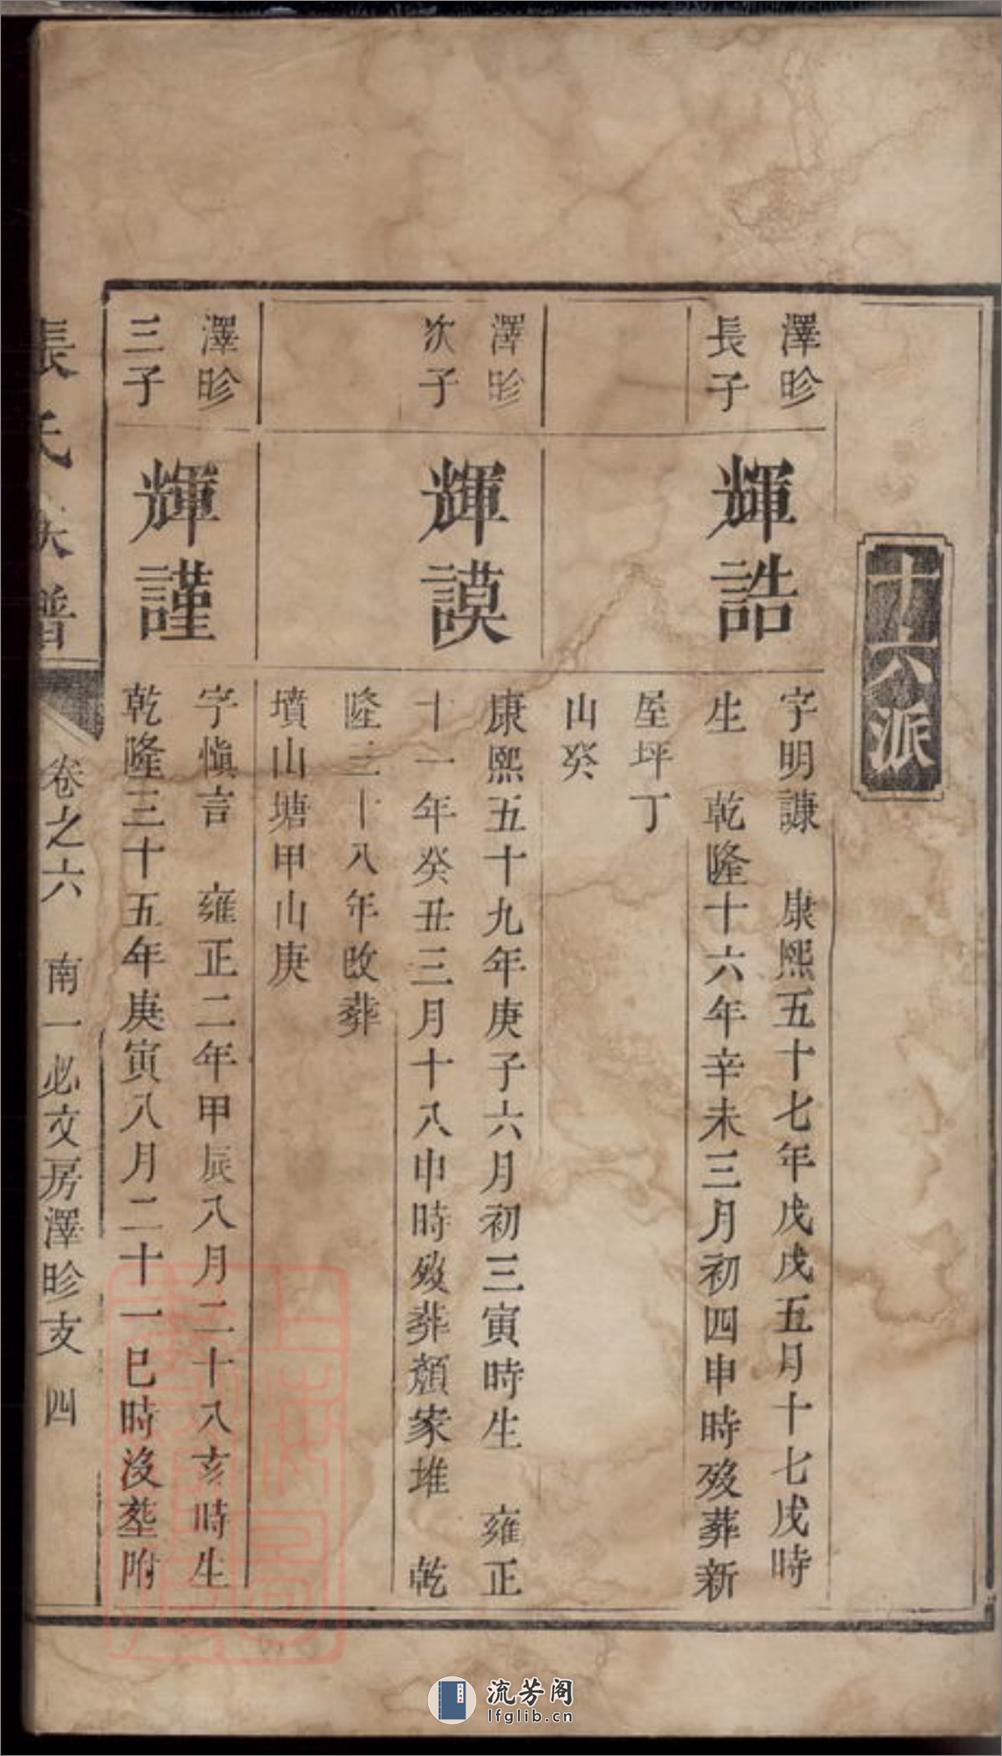 十六派
澤昣
長子
輝誥
字明謙　康熙五十七年戊戌五月十七戌時
生　乾隆十六年辛未三月初四申時歿葬新
屋坪丁
山癸
澤昣
次子
輝謨
康熙五十九年庚子六月初三寅時生　雍正
十一年癸丑三月十八申時歿葬顏家堆　乾
隆三十八年改葬
墳山塘甲山庚
澤昣
三子
輝謹
字慎言　雍正二年甲辰八月二十八亥時生
乾隆三十五年庚寅八月二十一巳時没塟附
張氏族譜
卷之六　南一必文房澤昣支　四
流芳阁
lfglib.cn